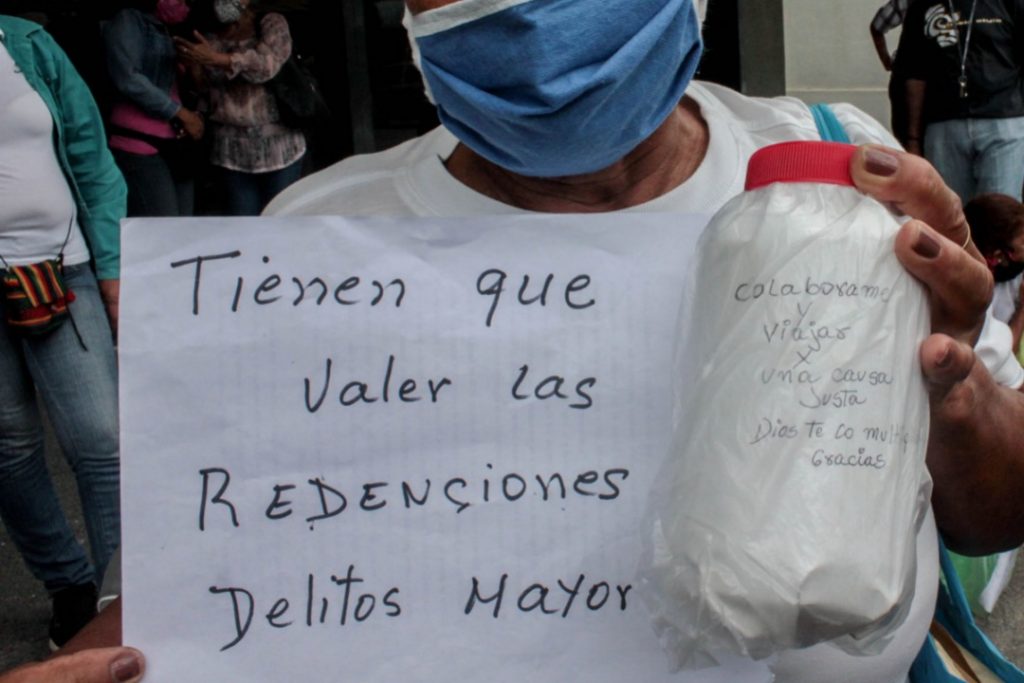 Tienen que
valer las
REDENÇiones
Delitos Mayor
colaborame
y
viajar
y
una causa
Justa
Dios te lo
Gracias